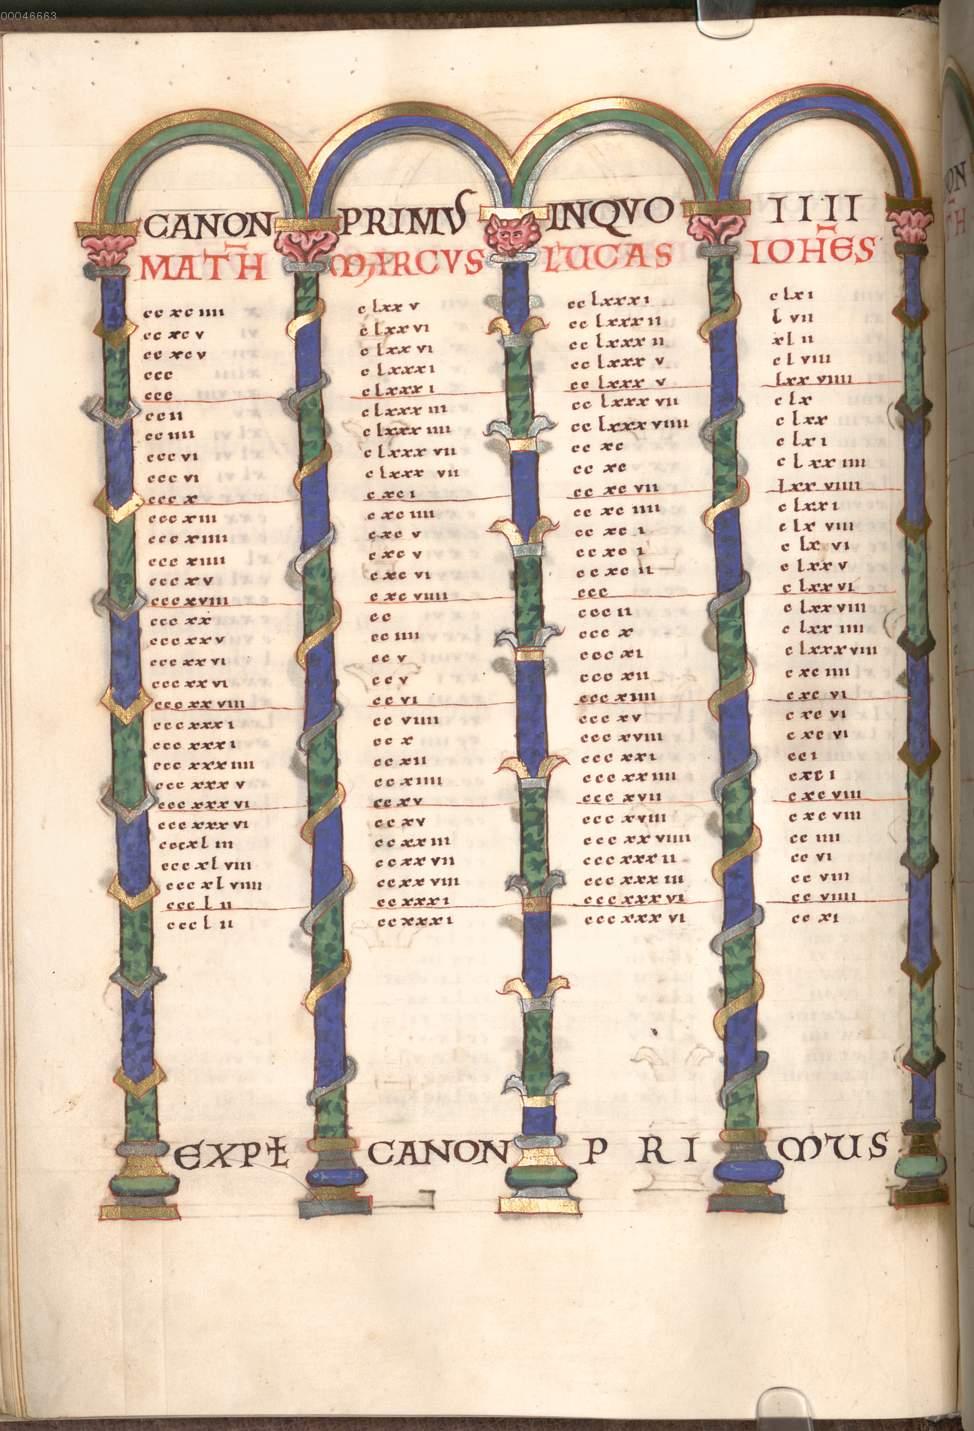 00046663
CANON PRIMVS INQVO IIII
MATH MARCVS LUCAS IOHES
cc xc iiii c lxx v cc lxxx i c lx i
cc xc v c lxx vi cc lxxx ii l vii
cc xc v c lxx vi cc lxxx ii xl ii
ccc c lxxx i cc lxxx v c l viii
ccc c lxxx i cc lxxx v lxx viiii
ccc ii c lxxx iii cc lxxx vii c lx
ccc iiii c lxxx iiii cc lxxx viiii c lxx
ccc vi c lxxx vii cc xc c lx i
ccc vi c lxxx vii cc xc c lxx iiii
ccc x c xc i cc xc vii lxx viiii
ccc x iii c xc iiii cc xc iiii c lxx i
ccc x iiii c xc v cc xc i c lx viii
ccc x iiii c xc v cc xc i c lx vi
ccc x v c xc vi cc xc ii c lxx v
ccc x viii c xc viiii ccc c lxx vi
ccc xx cc ccc ii c lxx viii
ccc xx v cc iiii ccc x c lxx iiii
ccc xx vi cc v ccc xi c lxxx viii
ccc xx vi cc v ccc xii c xc iiii
ccc xx viii cc vi ccc x iiii c xc vi
ccc xxx i cc viiii ccc xv c xc vi
ccc xxx i cc x ccc xviii c xc vi
ccc xxx iiii cc xii ccc xx i cc i
ccc xxx v cc x iiii ccc xx iiii c xc i
ccc xxx vi cc xv ccc xvii c xc viii
ccc xxx vi cc xv ccc xviii c xc viii
ccc xl iii cc xx iii ccc xx viiii cc iiii
ccc xl viii cc xx vii ccc xxx ii cc vi
ccc xl viiii cc xx viii ccc xxx iii cc viii
ccc l ii cc xxx i ccc xxx vi cc viiii
ccc l ii cc xxx i ccc xxx vi cc xi
EXPŁ CANON PRI MUS